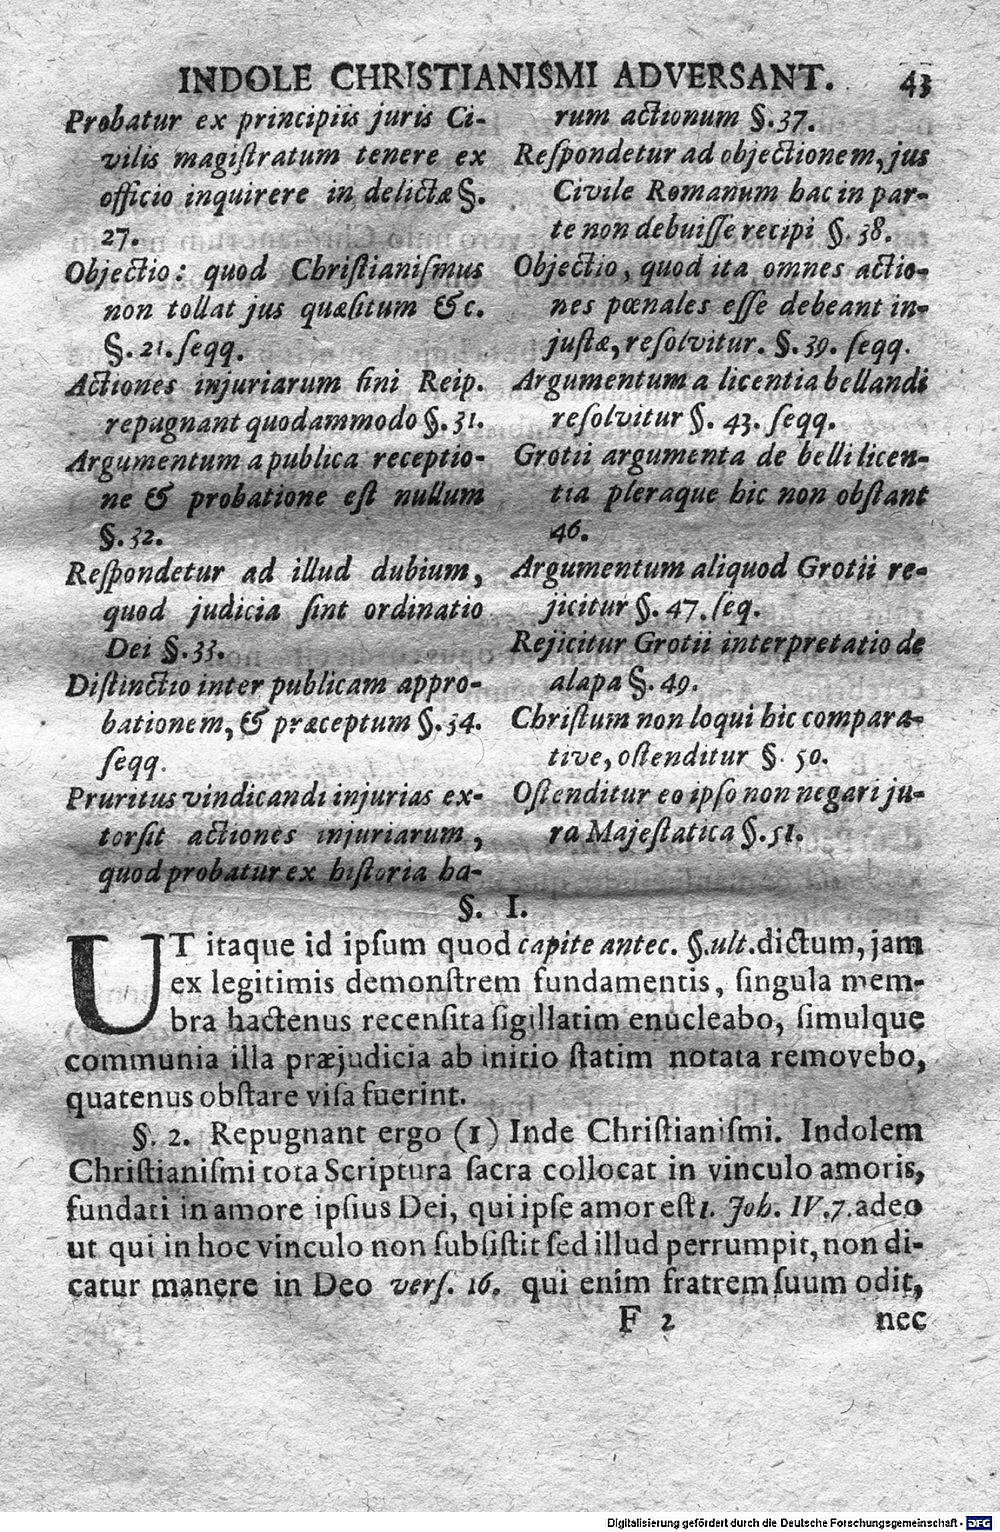 INDOLE CHRISTIANISMI ADVERSANT. 43
Probatur ex principiis juris Ci-
vilis magiſtratum tenere ex
officio inquirere in delictæ §.
27.
Objectio: quod Chriſtianiſmus
non tollat jus quæſitum &c.
§. 21. ſeqq.
Actiones injuriarum fini Reip.
repugnant quodammodo §. 31.
Argumentum a publica receptio-
ne & probatione eſt nullum
§. 32.
Reſpondetur ad illud dubium,
quod judicia ſint ordinatio
Dei §. 33.
Diſtinctio inter publicam appro-
bationem, & præceptum §. 34.
ſeqq.
Pruritus vindicandi injurias ex-
torſit actiones injuriarum,
quod probatur ex hiſtoria ha-
rum actionum §. 37.
Reſpondetur ad objectionem, jus
Civile Romanum hac in par-
te non debuiſſe recipi §. 38.
Objectio, quod ita omnes actio-
nes pœnales eſſe debeant in-
juſtæ, reſolvitur. §. 39. ſeqq.
Argumentum a licentia bellandi
reſolvitur §. 43. ſeqq.
Grotii argumenta de belli licen-
tia pleraque hic non obſtant
46.
Argumentum aliquod Grotii re-
jicitur §. 47. ſeq.
Rejicitur Grotii interpretatio de
alapa §. 49.
Chriſtum non loqui hic compara-
tive, oſtenditur § 50.
Oſtenditur eo ipſo non negari ju-
ra Majeſtatica §. 51.
§. I.
UT itaque id ipſum quod capite antec. §. ult. dictum, jam
ex legitimis demonſtrem fundamentis, ſingula mem-
bra hactenus recenſita ſigillatim enucleabo, ſimulque
communia illa præjudicia ab initio ſtatim notata removebo,
quatenus obſtare viſa fuerint.
§. 2. Repugnant ergo (1) Inde Chriſtianiſmi. Indolem
Chriſtianiſmi tota Scriptura ſacra collocat in vinculo amoris,
fundati in amore ipſius Dei, qui ipſe amor eſt 1. Joh. IV. 7. adeo
ut qui in hoc vinculo non ſubſiſtit ſed illud perrumpit, non di-
catur manere in Deo verſ. 16. qui enim fratrem ſuum odit,
F 2 nec
Digitalisierung gefördert durch die Deutsche Forschungsgemeinschaft - DFG